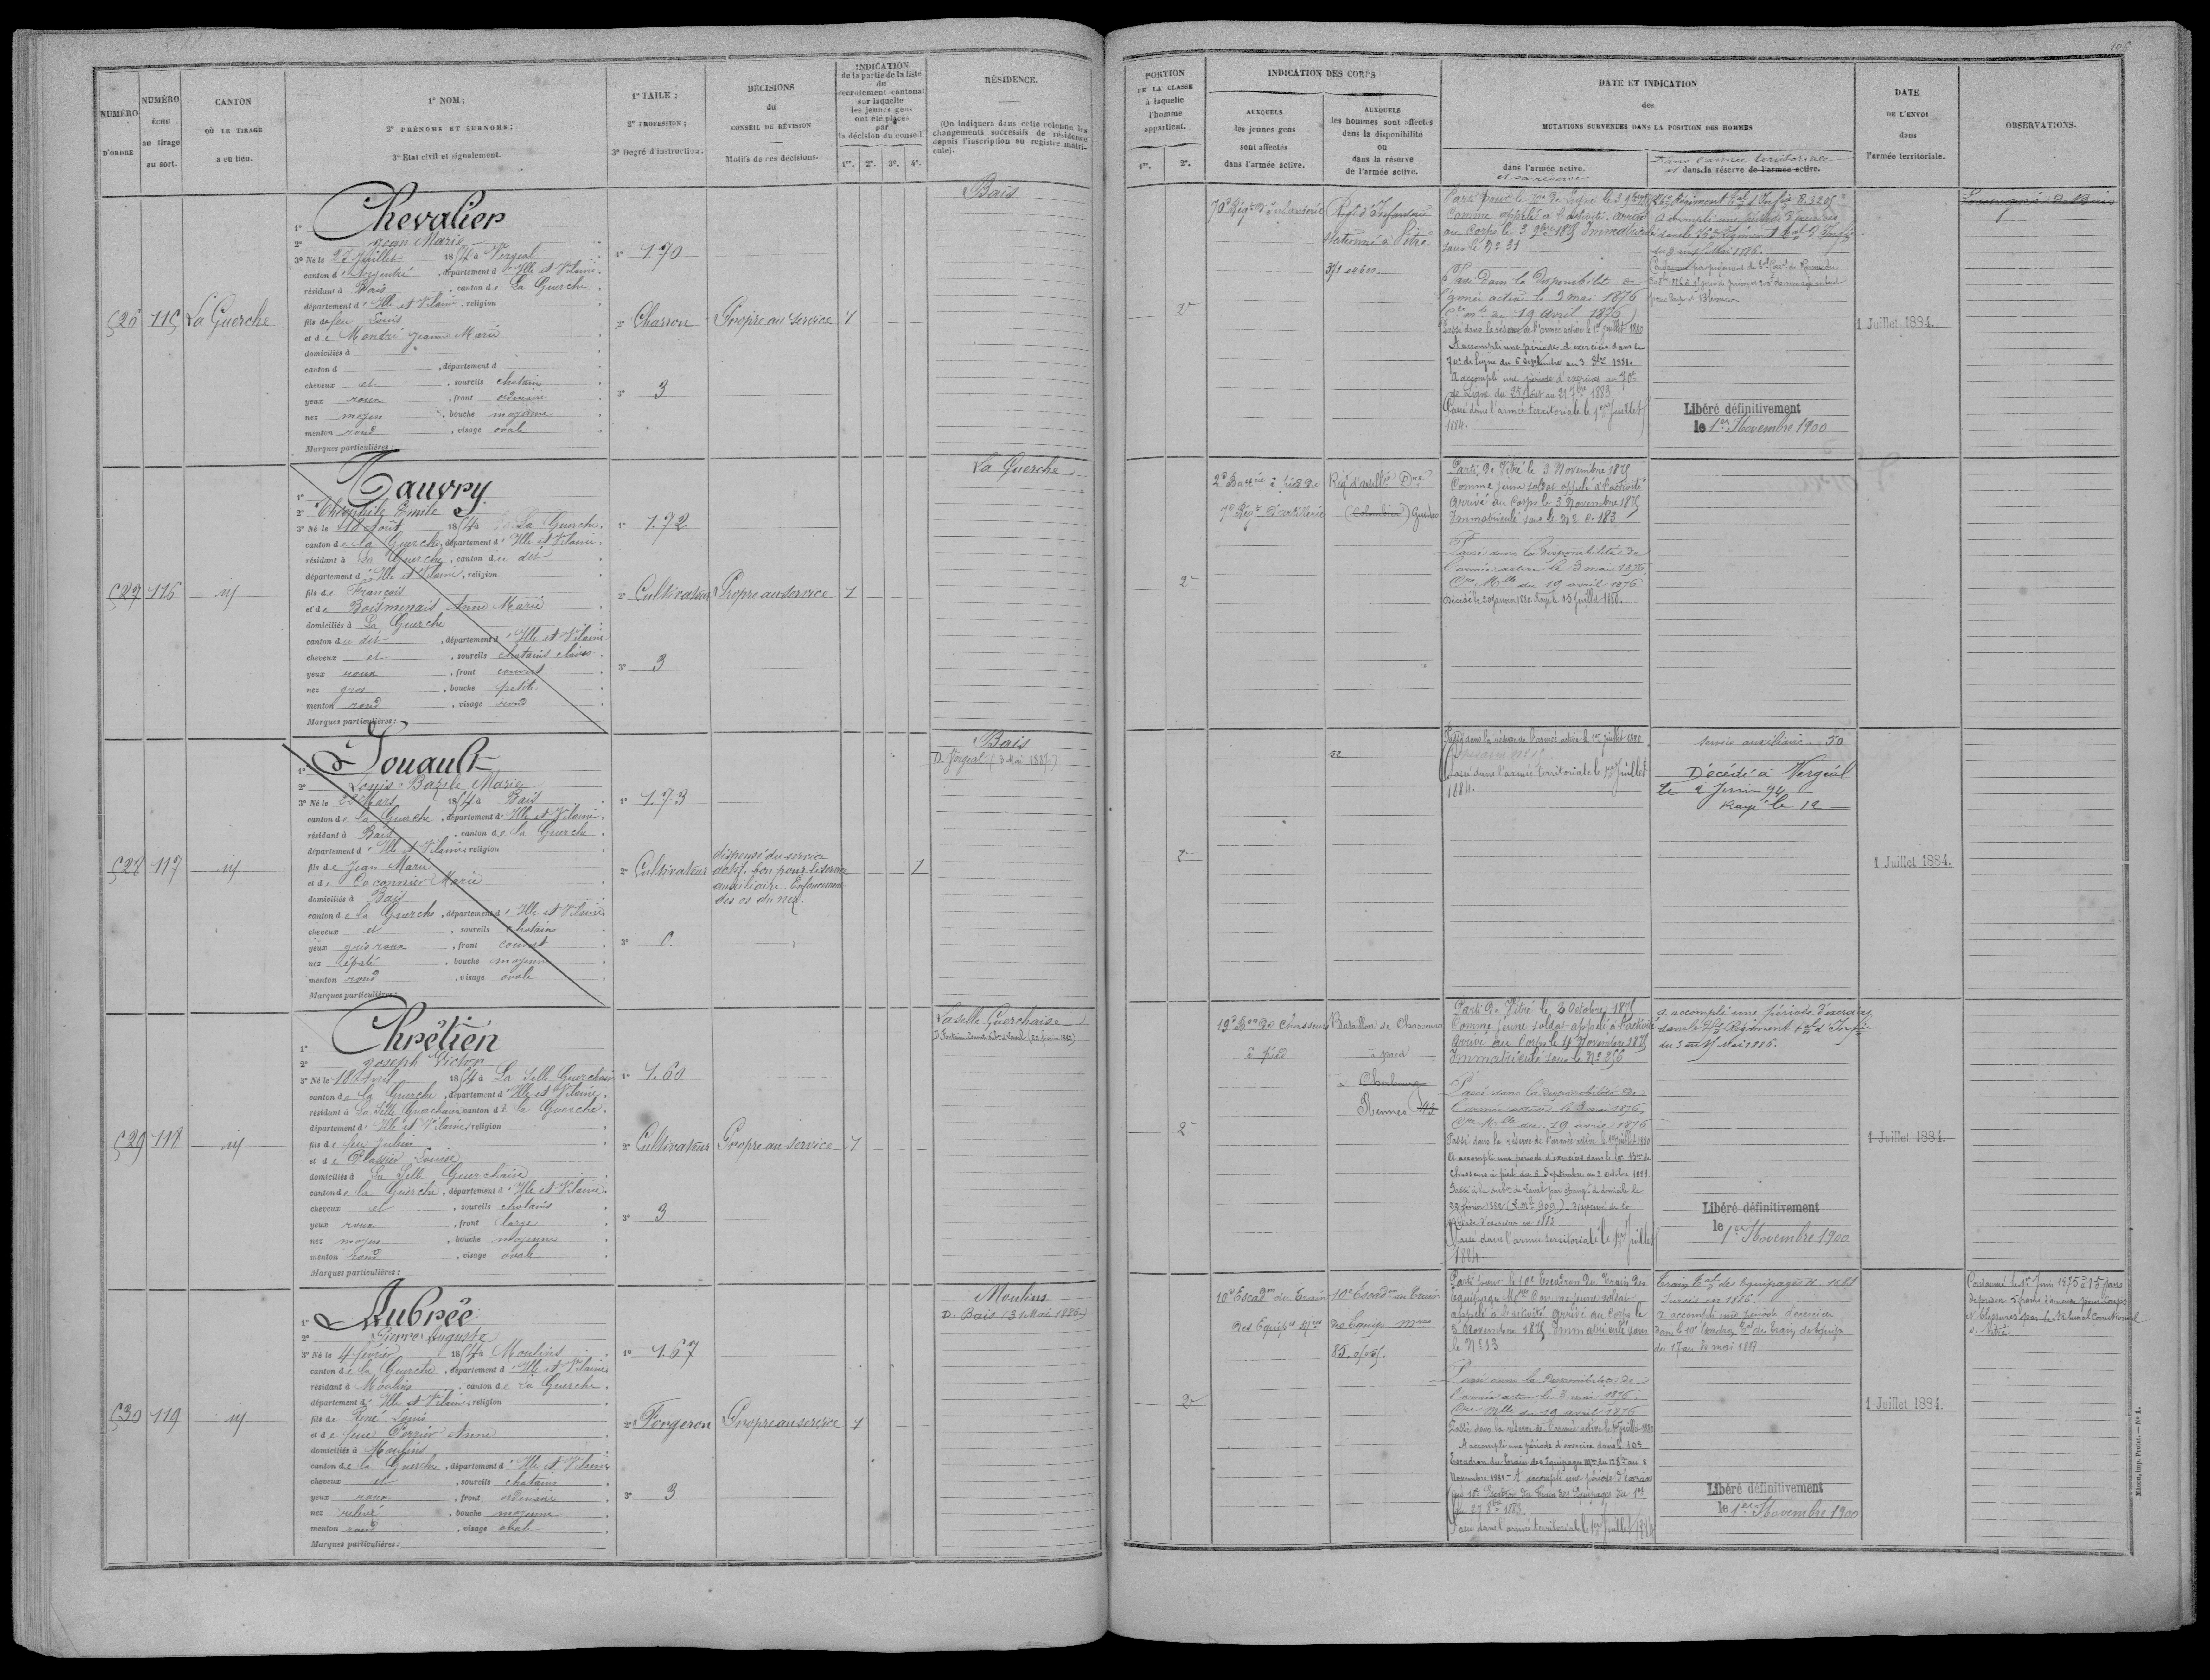 105
NUMÉRO D'ORDRE
NUMÉRO ÉCHU au tirage au sort.
CANTON OÙ LE TIRAGE a eu lieu.
1° NOM;
2° PRÉNOMS ET SURNOMS;
3° Etat civil et signalement.
1° TAILE;
2° PROFESSION;
3° Degré d'instruction.
DÉCISIONS
du
CONSEIL DE RÉVISION
Motifs de ces décisions.
INDICATION
de la partie de la liste
du
recrutement cantonal
sur laquelle
les jeunes gens
ont été placés
par
la décision du conseil
1re. 2e. 3e. 4e.
RÉSIDENCE.
(On indiquera dans cette colonne les
changements successifs de résidence
depuis l'inscription au registre matri-
cule).
PORTION
DE LA CLASSE
à laquelle
l'homme
appartient.
1re. 2e.
INDICATION DES CORPS
AUXQUELS
les jeunes gens
sont affectés
dans l'armée active.
AUXQUELS
les hommes sont affectés
dans la disponibilité
ou
dans la réserve
de l'armée active.
DATE ET INDICATION
des
MUTATIONS SURVENUES DANS LA POSITION DES HOMMES
dans l'armée active.
et sa reserve
Dans l'armée territoriale
et dans la réserve de l'armée active.
DATE
DE L'ENVOI
dans
l'armée territoriale.
OBSERVATIONS.
526 115 La Guerche
1° Chevalier
2° Jean Marie
3° Né le 27 Juillet 1854 à Vergeal
canton d'Argentré, département d'Ille et Vilaine.
résidant à Bais, canton de La Guerche.
département d'Ille et Vilaine, religion
fils de feu Louis
et de Mondré Jeanne Marie
domiciliés à
canton d , département d
cheveux et , sourcils chatains
yeux roux , front ordinaire
nez moyen , bouche moyenne
menton rond , visage ovale
Marques particulières:
1° 1.70
2° Charron
3° 3
Propre au service 1
Bais
2e
70e Régt d'Infanterie
Régt d'Infanterie
stationné à Vitré
Parti pour le 70e de Ligne le 3 9bre 1875
Comme appelé à l'activité arrivé
au corps le 3 9bre 1875 Immatriculé
sous le No 31
Passé dans la disponibilité de
l'armée active le 3 mai 1876
19 avril 1876)
Passé dans la réserve de l'armée active le 1er Juillet 1880
A accompli une période d'exercices dans le
70e de Ligne du 6 Septembre au 3 8bre 1881.
A accompli une période d'exercices au 70e
de Ligne du 25 Aout au 21 7bre 1883
Passé dans l'armée territoriale le 1er Juillet
1884.
A accompli une période d'exercices
Libéré définitivement
le 1er Novembre 1900
1 Juillet 1884.
Louvigné de Bais
527 116 id
1° Tauvry
2° Théophile Emile
3° Né le 18 Aout 1854 à La Guerche.
canton de la Guerche, département d'Ille et Vilaine.
résidant à La Guerche, canton du dit
département d'Ille et Vilaine, religion
fils de François
et de Boismenais Anne Marie
domiciliés à La Guerche
canton du dit , département d'Ille et Vilaine
cheveux et , sourcils chatains clairs
yeux roux , front couvert
nez gros , bouche petite
menton rond , visage rond
Marques particulières:
1° 1.72
2° Cultivateur
3° 3
Propre au service 1
La Guerche
2e
7e Régt d'Artillerie
(Colombier)
Parti de Vitré le 3 Novembre 1875
Comme jeune soldat appelé à l'activité
Arrivé au Corps le 3 Novembre 1875
Immatriculé sous le No 6.183
Passé dans la disponibilité de
l'armée active le 3 mai 1876
Cre Mlle du 19 avril 1876
Décédé le 20 Janvier 1880. Rayé le 15 Juillet 1880.
528 117 id
1° Louault
2° Louis Bazile Marie
3° Né le 22 Mars 1854 à Bais
canton de la Guerche, département d'Ille et Vilaine.
résidant à Bais , canton de la Guerche
département d'Ille et Vilaine, religion
fils de Jean Marie
et de Coconnier Marie
domiciliés à Bais
canton de la Guerche, département d'Ille et Vilaine
cheveux et , sourcils chatains
yeux gris roux , front couvert
nez épaté , bouche moyenne
menton rond , visage ovale
Marques particulières:
1° 1.73
2° Cultivateur
3° 0.
dispensé du service
actif, bon pour le service
auxiliaire. Enfoncement
des os du nez.
Bais
D. Vergeal (3 Mai 1887)
52.
Passé dans la réserve de l'armée active le 1er Juillet 1880
Passé dans l'armée territoriale le 1er Juillet
1884.
Service auxiliaire. 50
Décédé à Vergéal
le 2 Juin 94
Rayé le 12
1 Juillet 1884.
529 118 id
1° Chrétien
2° Joseph Victor
3° Né le 18 Avril 1854 à La Selle Guerchaise
canton de la Guerche, département d'Ille et Vilaine.
résidant à La Selle Guerchaise canton de la Guerche.
département d'Ille et Vilaine, religion
fils de feu Julien
et de Louise
domiciliés à La Selle Guerchaise
canton de la Guerche, département d'Ille et Vilaine.
cheveux et , sourcils chatains
yeux roux , front large
nez moyen , bouche moyenne
menton rond , visage ovale
Marques particulières:
1° 1.60
2° Cultivateur
3° 3
Propre au service 1
La Selle Guerchaise
2e
19e Bon de Chasseurs
à pied
Bataillon de Chasseurs
à pied
à Cherbourg
Rennes 43
Parti de Vitré le 3 Octobre 1875
Comme jeune soldat appelé à l'activité
Arrivé au Corps le 4 Novembre 1875
Immatriculé sous le No 256
Passé dans la disponibilité de
l'armée active le 3 mai 1876,
Cre Mlle du 19 avril 1876
Passé dans la réserve de l'armée active le 1er Juillet 1880
A accompli une période d'exercices dans le 19e Bon de
Chasseurs à pied du 6 Septembre au 3 octobre 1881
22 février 1882
période d'exercices en 1883
Passé dans l'armée territoriale le 1er Juillet
1884.
a accompli une période d'exercices
Libéré définitivement
le 1er Novembre 1900
1 Juillet 1884.
530 119 id
1° Aubrée
2° Pierre Auguste
3° Né le 4 février 1854 à Moulins
canton de la Guerche, département d'Ille et Vilaine
résidant à Moulins , canton de La Guerche.
département d'Ille et Vilaine, religion
fils de René Louis
et de feue Perrier Anne
domiciliés à Moulins
canton de la Guerche, département d'Ille et Vilaine
cheveux et , sourcils chatains
yeux roux , front ordinaire
nez relevé , bouche moyenne
menton rond , visage ovale
Marques particulières:
1° 1.67
2° Forgeron
3° 3
Propre au service 1
Moulins
D. Bais (31 Mai 1885.)
2e
10e Escadon du Train
des Equipes Mres
10e Escadon du Train
des Equip. Mres
Parti pour le 10e Escadron du Train des
Equipages Mres Comme jeune soldat
appelé à l'activité arrivé au Corps le
3 Novembre 1875 Immatriculé sous
Passé dans la disponibilité de
l'armée active le 3 mai 1876.
Cre Mlle du 19 avril 1876
Passé dans la réserve de l'armée active le 1er Juillet 1880
A accompli une période d'exercice dans le 10e
Escadron du Train des Equipages
Novembre 1881 - A accompli une période d'exercices
au 10e Escadron du Train des Equipages du 1er
au 27 8bre 1883.
Passé dans l'armée territoriale le 1er Juillet 1884
Sursis en 1886
a accompli une période d'exercices
Libéré définitivement
le 1er Novembre 1900
1 Juillet 1884.
Condamné le 1er Juin 1895 à 15 jours
de prison 5 francs d'amende pour Coups
et blessures par le tribunal Correctionnel
de Vitré.
Mâcon, imp. Protat. — No 1.